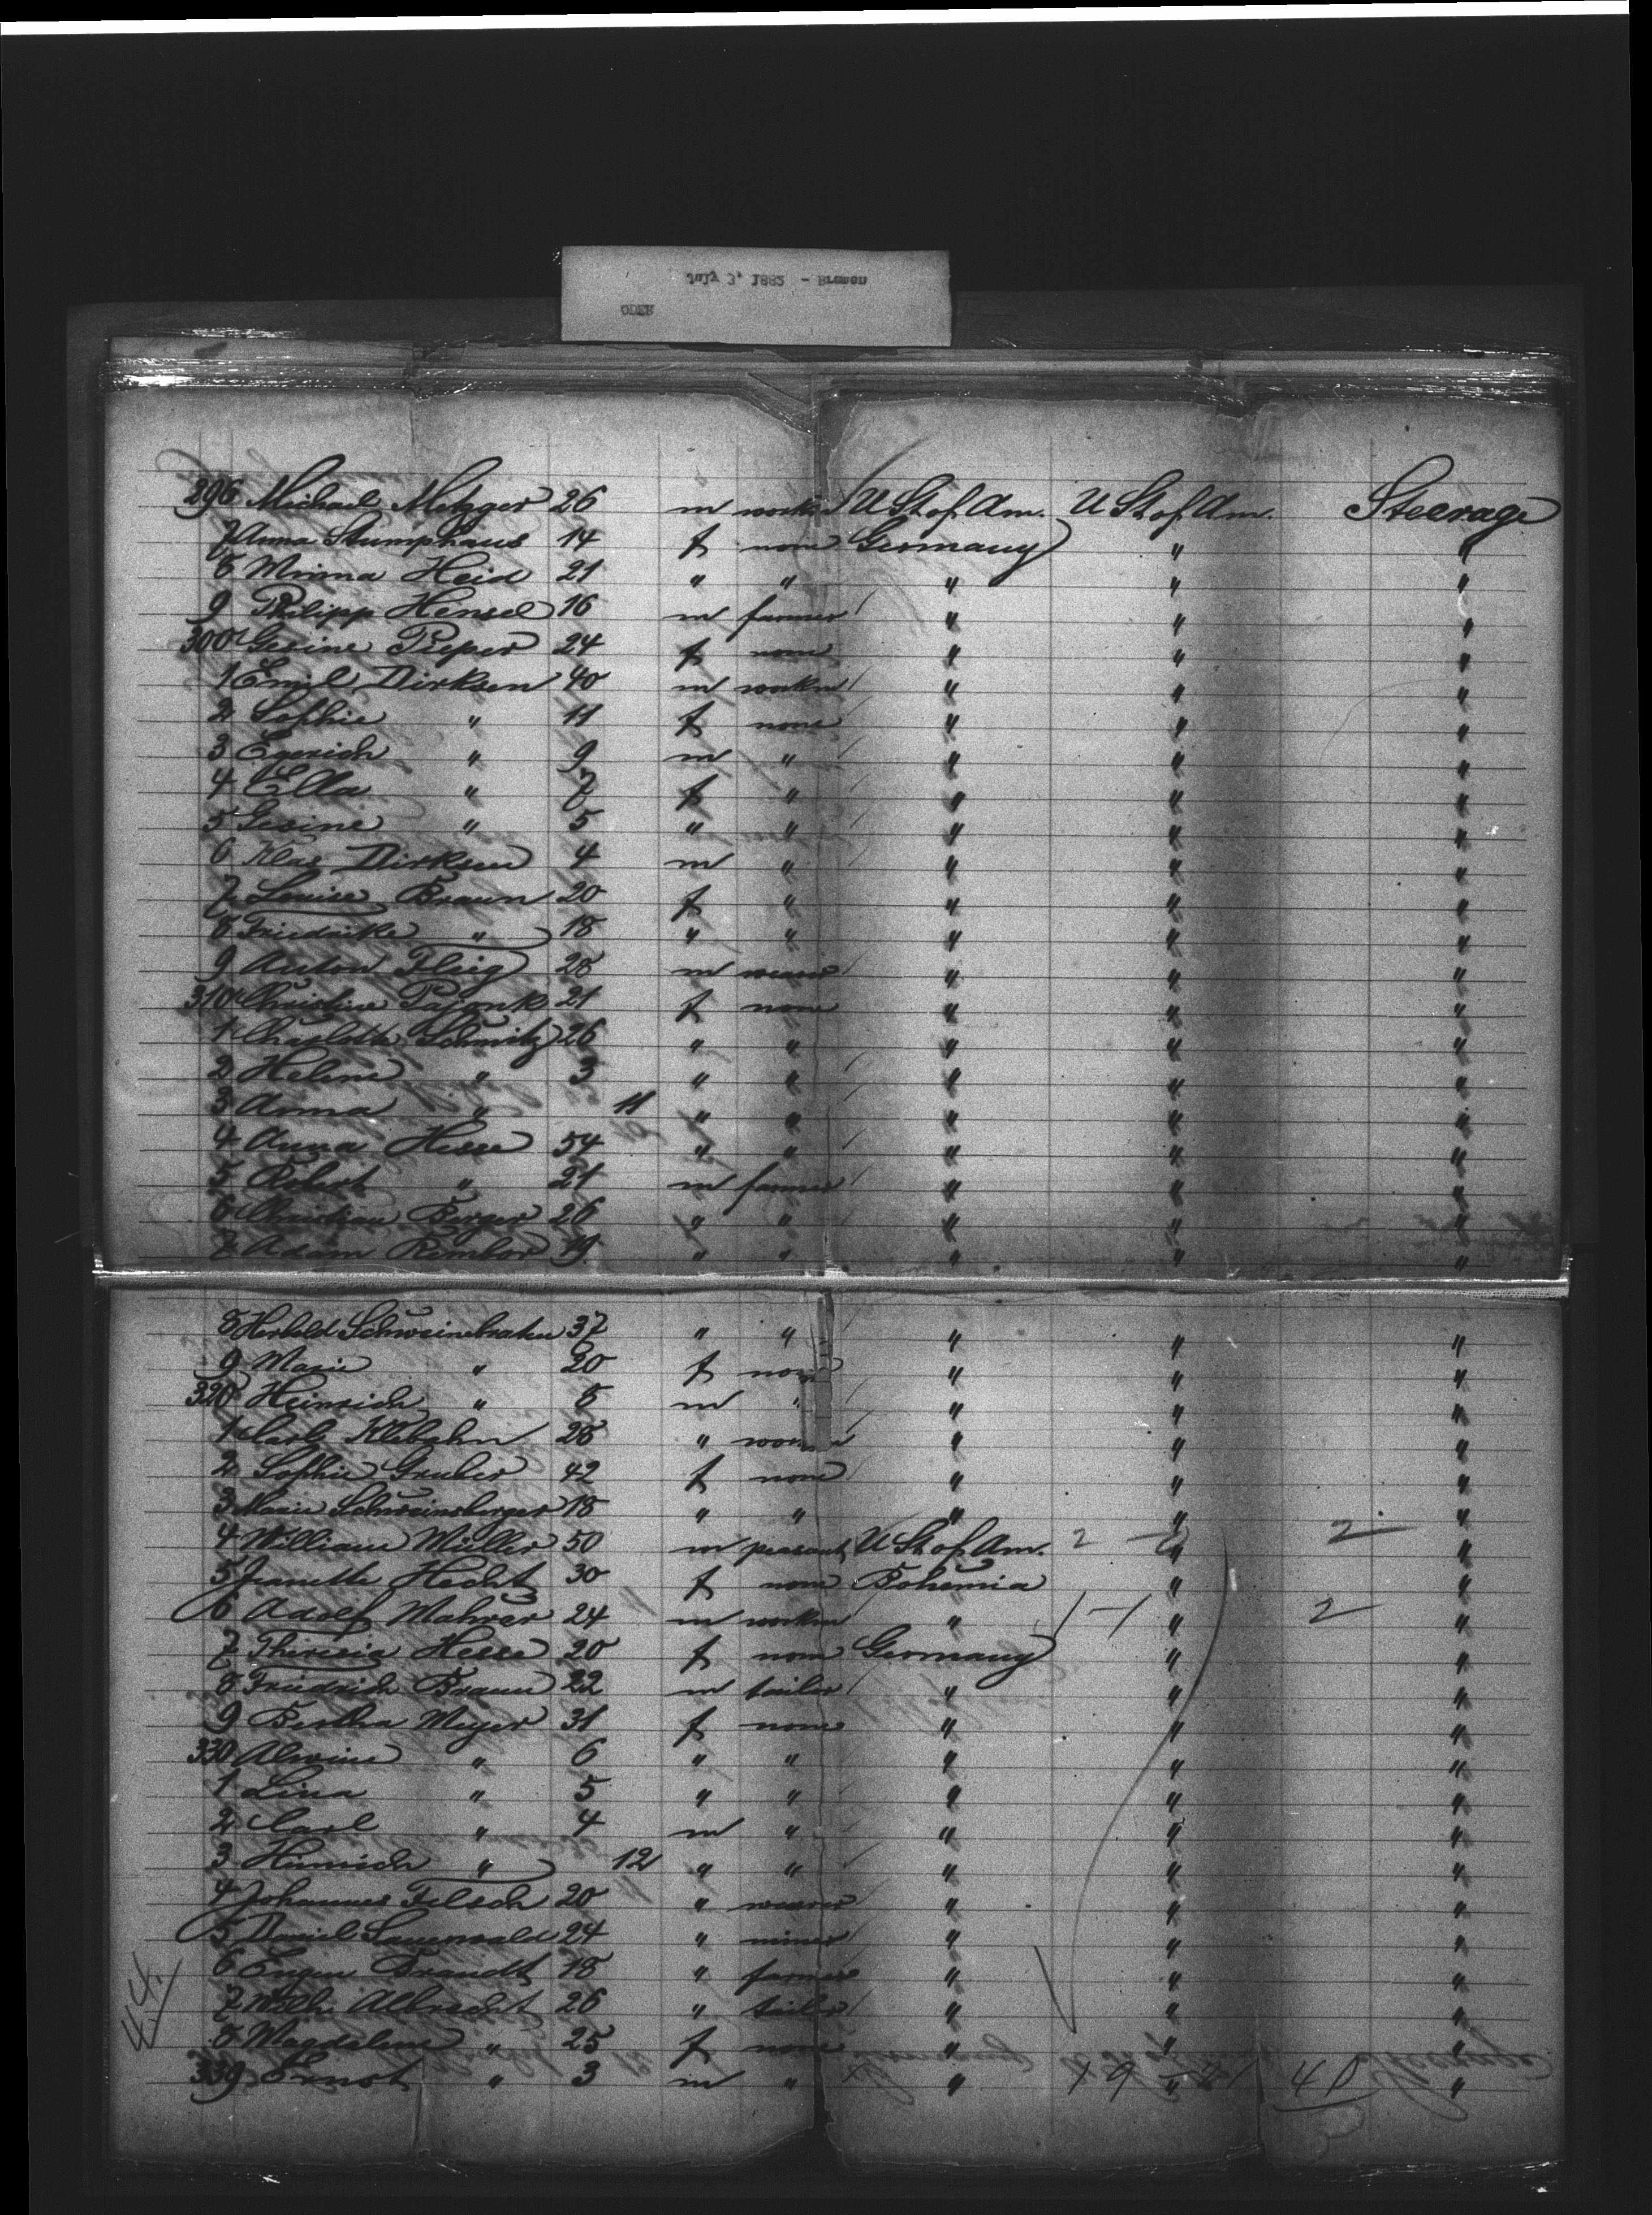 July 3, 1882 - Bremen
ODER
296 Michael Metzger 26 m workm U St of Am. U St of Am. Steerage
7 Anna Stumphaus 14 f none Germany " "
8 Minna Heid 21 " " " " "
9 Philipp Hensel 16 m farmer " " "
300 Gesine Pieper 24 f none " " "
1 Emil Dirksen 40 m workm " " "
2 Sophie " 11 f none " " "
3 " 9 m " " " "
4 Ella " 7 f " " " "
5 Gesine " 5 " " " " "
6 Klas Dirksen 4 m " " " "
7 Louise Braun 20 f " " " "
8 Friedrike " 18 " " " " "
9 Anton Flaig 28 m weaver " " "
310 Christine 21 f none " " "
1 Charlotte Schmitz 26 " " " " "
2 Helene " 3 " " " " "
3 Anna " 11 " " " " "
4 Anna Hesse 54 " " " " "
5 Robert " 21 m farmer " " "
6 Christian Berger 26 " " " " "
7 Adam 19 " " " " "
8 Schweinebraten 37 " " " " "
9 Marie " 20 f none " " "
320 Heinrich " 8 m " " " "
1 Carl Klebahn 28 " " " "
2 Sophie Gruber 42 f none " " "
3 Marie Schweinsberger 18 " " " " "
4 William Müller 50 m peasant U St of Am. 2 - 2 " 2 "
5 Janette Hecht 30 f none Bohemia " "
6 Adolf Mahrer 24 m workm " 1 - 1 " 2 "
7 Theresia Hesse 20 f none Germany " "
8 Friedrich Braun 22 m tailor " " "
9 Bertha Meyer 31 f none " " "
330 Alwine " 6 " " " " "
1 Lina " 5 " " " " "
2 Carl " 4 m " " " "
3 Heinrich " 12 " " " " "
4 Johannes Felsch 20 " weaver " " "
5 Daniel Sauerwald 24 " miner " " "
6 Eugen Brandt 18 " farmer " " "
7 Wilh. Albrecht 26 " tailor " " "
44.
8 Magdalene " 25 f none " " "
339 Ernst " 3 m " " 19 - 21 " 40 "